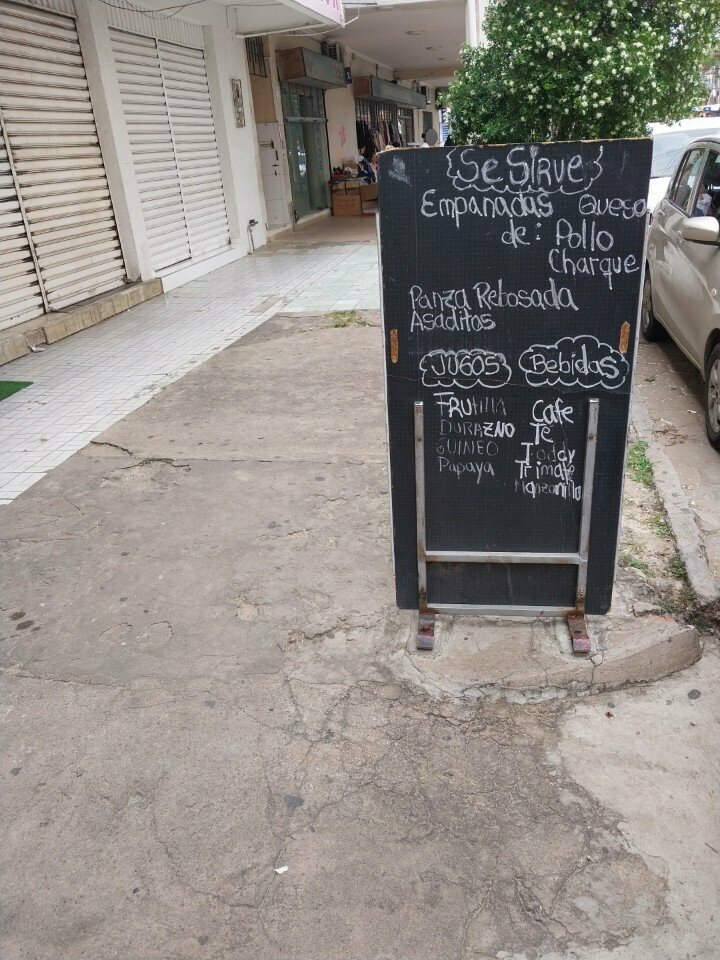 Se Sirve
Empanadas Queso
de: Pollo
Charque
Panza Rebosada
Asaditos
JUGOS Bebidas
FRUtilla Cafe
DURAZNO Te
GUINEO Toddy
Papaya Trimate
Manzanilla